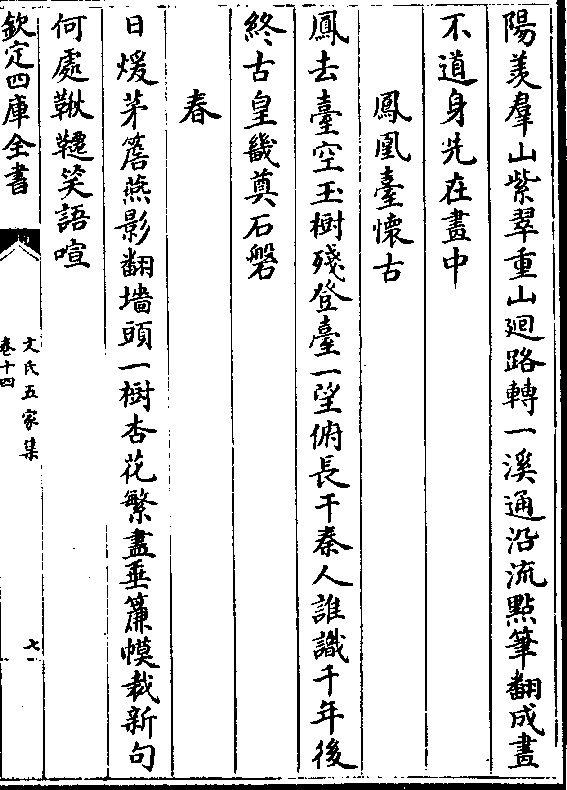 陽羨羣山紫翠重山廻路轉一溪通沿流點筆翻成畫
不道身先在畫中
鳳凰臺懷古
鳳去臺空玉樹殘登臺一望俯長干秦人誰識千年後
終古皇畿奠石磐
春
日煖茅簷燕影翻墻頭一樹杏花繁盡垂簾幙裁新句
何處鞦韆笑語喧
欽定四庫全書
文氏五家集
卷十四
七